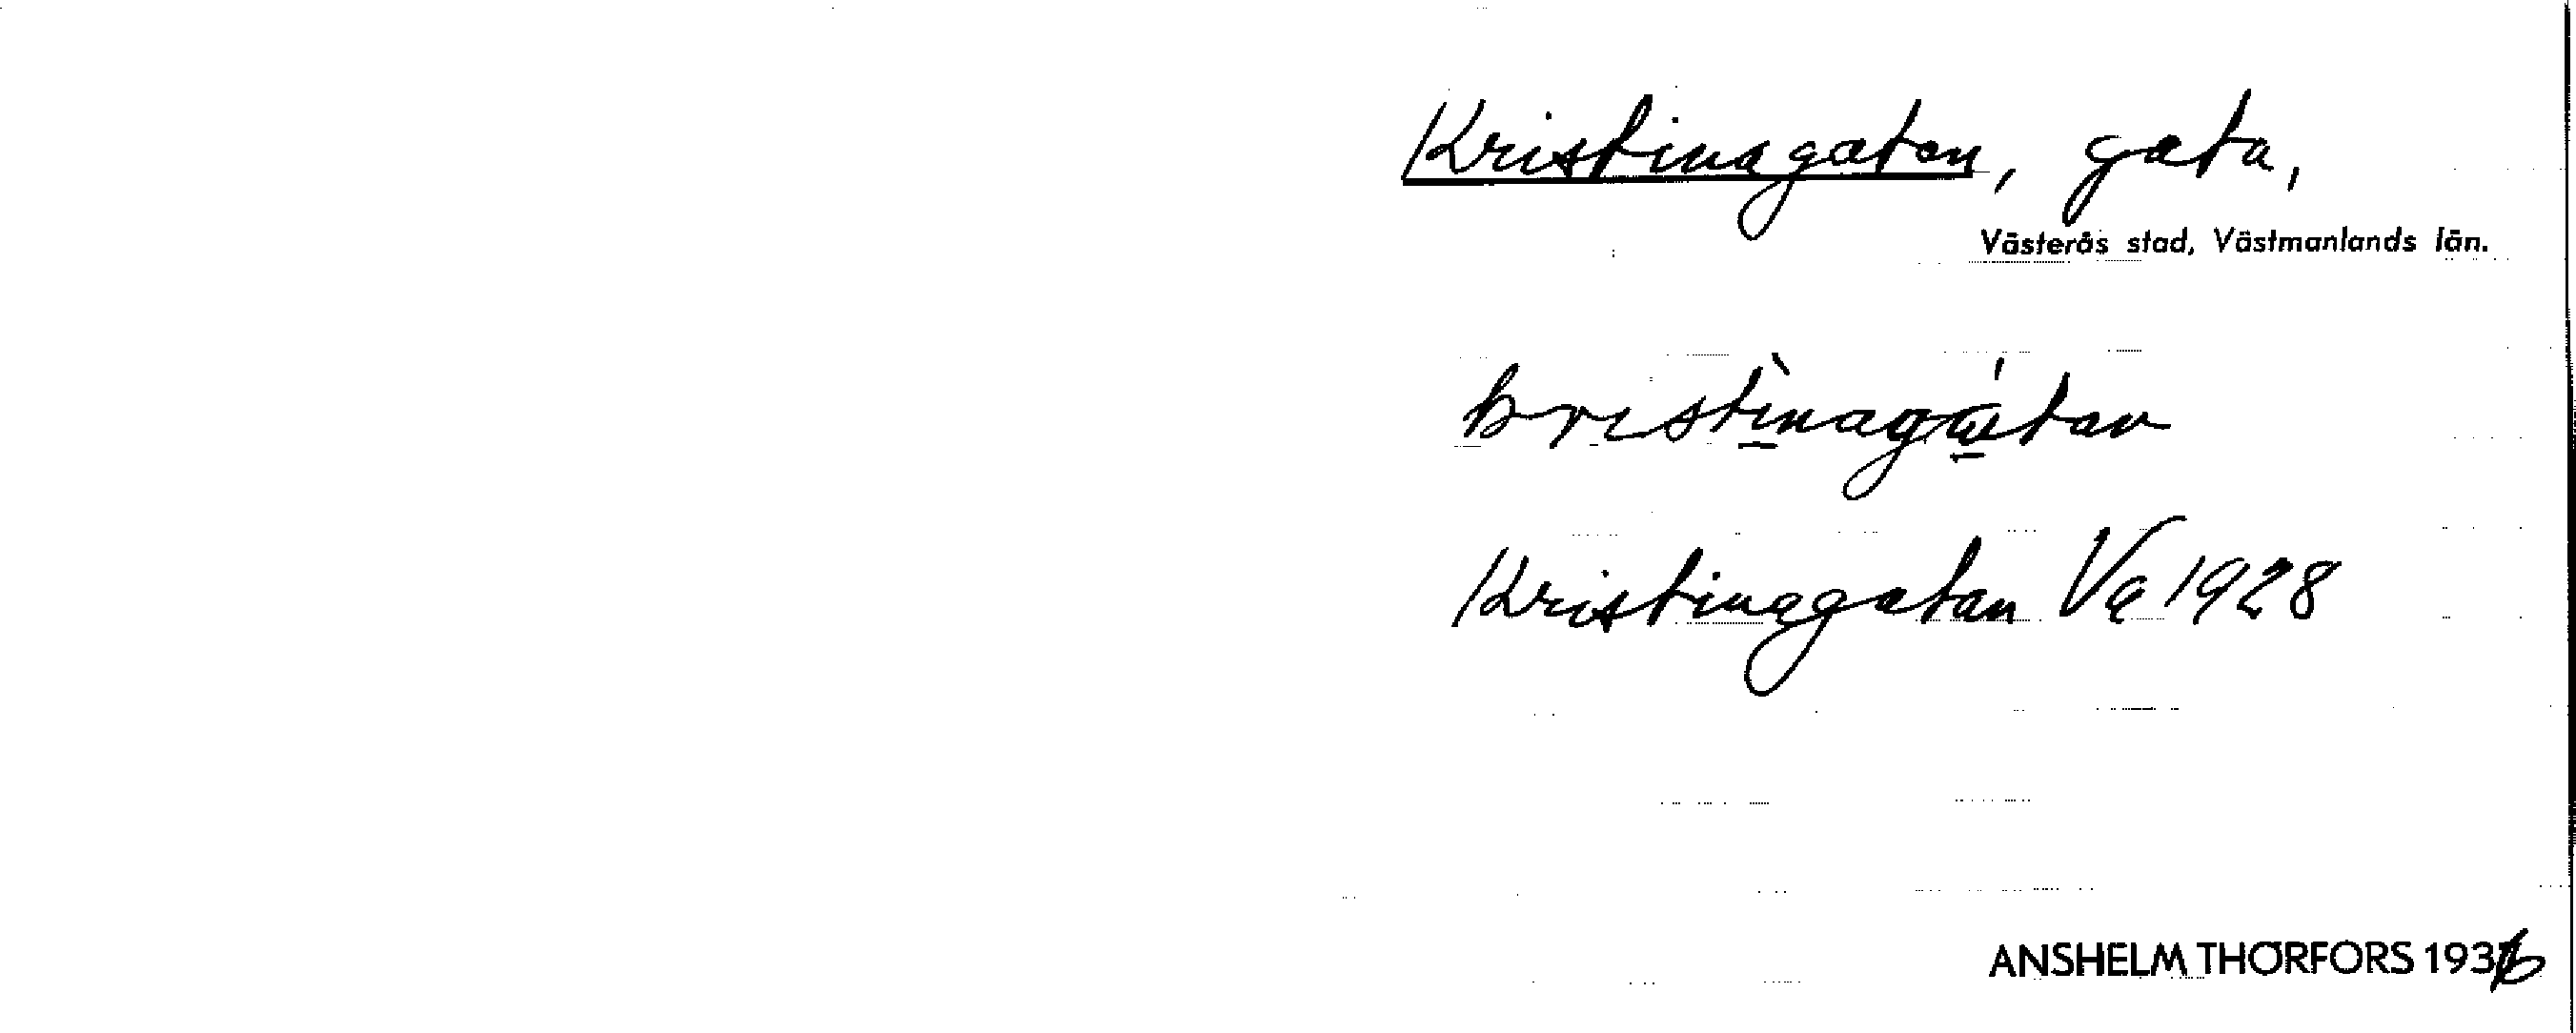 Kristinagatan, gata,
Västerås stad, Västmanlands län.
kristinagatan
Kristinagatan Va 1928
ANSHELM THORFORS 1936